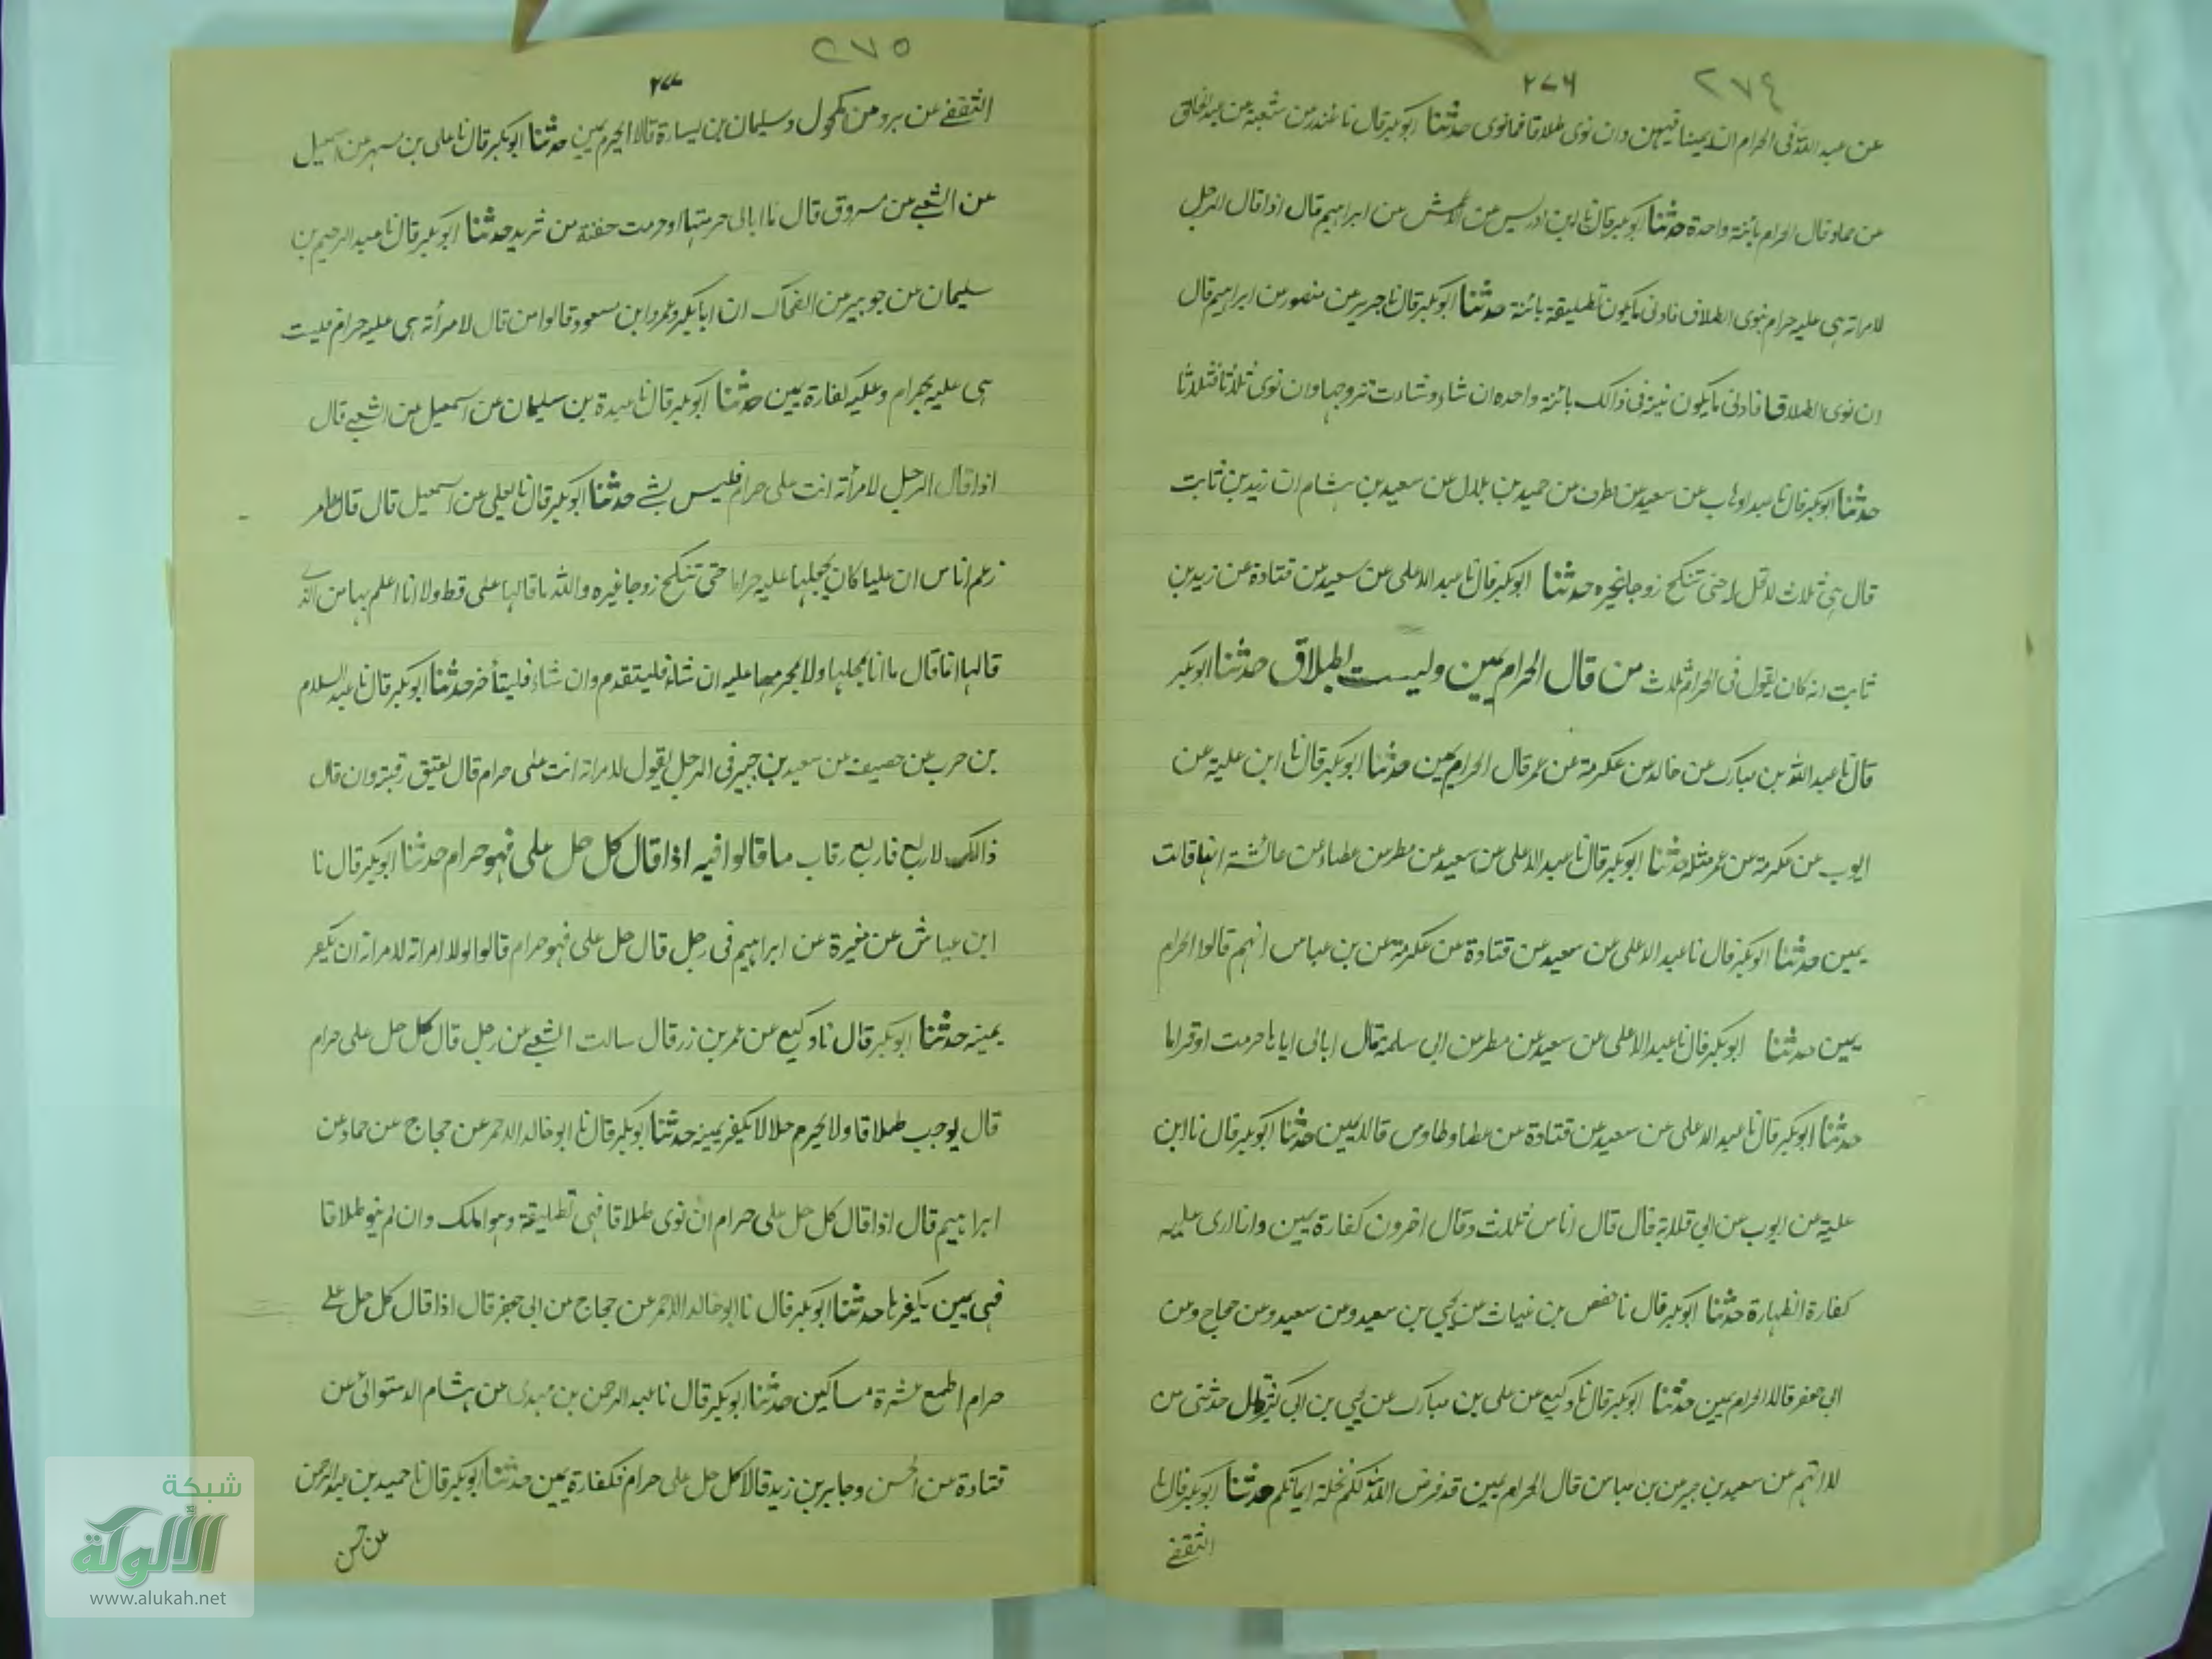 ٢٧٤
٢٧٦
عن عبد الله فى الحرام ان يمينا فيمين وان نوى طلاقا فمانوى حدثنا ابوبكر قال نا غندر عن شعبة عن عبد الخالق
عن حماد قال الحرام بائنة واحدة حدثنا ابوبكر قال نا ابن ادريس عن الاعمش عن ابراهيم قال اذا قال الرجل
لامراته هى عليه حرام ينوى الطلاق فادنى مايكون تطليقة بائنة حدثنا ابوبكر قال نا جرير عن منصور عن ابراهيم قال
ان نوى الطلاق فادنى مايكون نيته فى ذالك بائنة واحده ان شاء وشاءت تزوجها وان نوى ثلاثا فثلاثا
حدثنا ابوبكر قال نا عبد الوهاب عن سعيد عن مطرف عن حميد بن هلال عن سعيد بن هشام ان زيد بن ثابت
قال هى ثلاث لاتحل له حتى تنكح زوجا غيره حدثنا ابوبكر قال نا عبد الاعلى عن سعيد عن قتادة عن زيد بن
ثابت انه كان يقول فى الحرام ثلاث من قال الحرام يمين وليست بطلاق حدثنا ابوبكر
قال نا عبد الله بن مبارك عن خالد عن عكرمة عن عمر قال الحرام يمين حدثنا ابوبكر قال نا ابن علية عن
ايوب عن عكرمة عن عمر مثله حدثنا ابوبكر قال نا عبد الاعلى عن سعيد عن مطر عن عطاء عن عائشة انها قالت
يمين حدثنا ابوبكر قال نا عبد الاعلى عن سعيد عن قتادة عن عكرمة عن بن عباس انهم قالوا الحرام
يمين حدثنا ابوبكر قال نا عبد الاعلى عن سعيد عن مطر عن ابى سلمة قال ابالى اياها حرمت او قراما
حدثنا ابوبكر قال نا عبد الاعلى عن سعيد عن قتادة عن عطا وطاوس قالا يمين حدثنا ابوبكر قال نا ابن
علية عن ايوب عن ابى قلابة قال قال اناس ثلاث وقال اخرون كفارة يمين وانا ارى عليه
كفارة الظهارة حدثنا ابوبكر قال نا حفص بن غياث عن يحيى بن سعيد وعن سعيد وعن حجاج وعن
ابى جعفر قالا الحرام يمين حدثنا ابوبكر قال نا وكيع عن على بن مبارك عن يحيى بن ابى كثير قال حدثنى من
لا اتهم عن سعيد بن جبير عن بن عباس قال الحرام يمين قد فرض الله لكم تحلة ايمانكم حدثنا ابوبكر قال نا
الثقفى
٢٧٥
٢٧٧
الثقفى عن برد عن مكحول وسليمان بن يسارة قالا الحرم يمين حدثنا ابوبكر قال نا على بن مسهر عن اسمعيل
عن الشعبى عن مسروق قال ما ابالى حرمتها او حرمت جفنة من ثريد حدثنا ابوبكر قال نا عبد الرحيم بن
سليمان عن جويبر عن الضحاك ان ابابكر وعمر وابن مسعود قالوا من قال لامرأته هى عليه حرام فليست
هى عليه بحرام وعليه كفارة يمين حدثنا ابوبكر قال نا عبدة بن سليمان عن اسمعيل عن الشعبى قال
اذا قال الرجل لامرأته انت على حرام فليس بشئ حدثنا ابوبكر قال نا يعلى عن اسمعيل قال قال عامر
زعم اناس ان عليا كان يجعلها عليه حراما حتى تنكح زوجا غيره والله ما قالها على قط ولانا اعلم بها من الذى
قالها انما قال ما انا بمحلها ولا بمحرمها عليه ان شاء فليتقدم وان شاء فليتأخر حدثنا ابوبكر قال نا عبد السلام
بن حرب عن خصيف عن سعيد بن جبير فى الرجل يقول لامراته انت على حرام قال يعتق رقبة وان قال
ذالك لاربع فاربع رقاب ما قالوا فيه اذا قال كل حل على فهو حرام حدثنا ابوبكر قال نا
ابن عياش عن مغيرة عن ابراهيم فى رجل قال حل على فهو حرام قالوا لولا امراته لامراته ان يكفر
يمينه حدثنا ابوبكر قال نا وكيع عن عمر بن ذر قال سالت الشعبى عن رجل قال كل حل على حرام
قال يوجب طلاقا ولا يحرم حلالا يكفر يمينه حدثنا ابوبكر قال نا ابو خالد الاحمر عن حجاج عن حماد عن
ابراهيم قال اذا قال كل حل على حرام ان نوى طلاقا فهى تطليقة وهو املك وان لم ينو طلاقا
فهى يمين يكفرها حدثنا ابوبكر قال نا ابو خالد الاحمر عن حجاج عن ابى جعفر قال اذا قال كل حل على
حرام اطعم عشرة مساكين حدثنا ابوبكر قال نا عبد الرحمن بن مهدى عن هشام الدستوائى عن
قتادة عن الحسن وجابر بن زيد قالا كل حل على حرام فكفارة يمين حدثنا ابوبكر قال نا حميد بن عبد الرحمن
عن حسن
شبكة
الألوكة
www.alukah.net